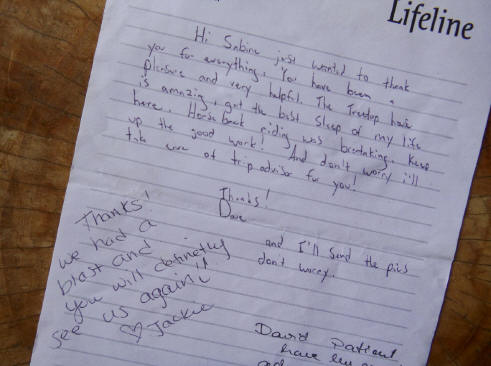 Lifeline
Hi Sabine just wanted to thank
you for everything. You have been a
pleasure and very helpful. The Treetop here
is amazing, got the best sleep of my life
here. Horse back riding was breataking. Keep
up the good work! And don't worry i'll
take care of trip advisor for you!
Thanks!
Dave
and I'll send the pics
don't worry.
Thanks!
we had a
blast and
you will definetly
see us again!!
♡ Jackie
David
have